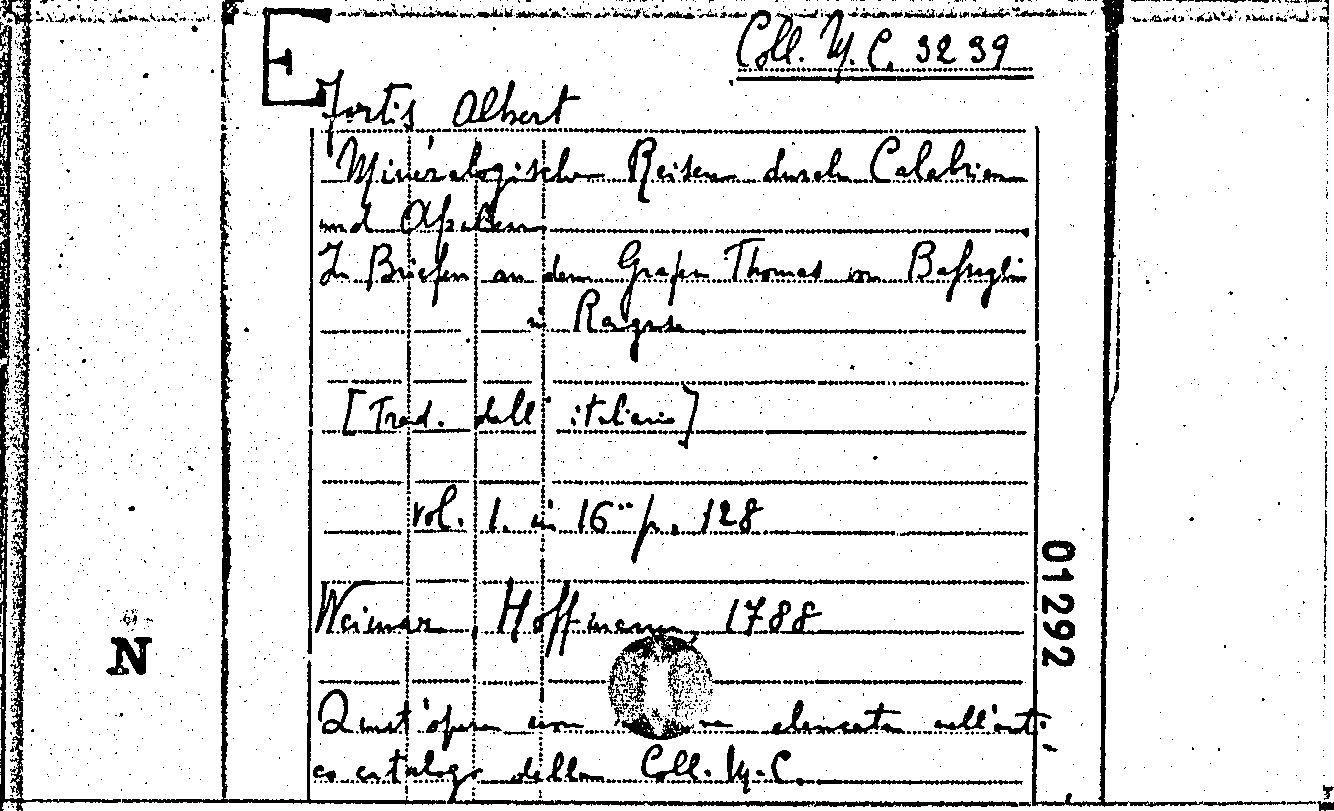 Coll. M. C. 3239
Fortis Albert
Mineralogische Reisen durch Calabrien
und Apulien
In Briefen an dem Grafen Thomas von Bassegli
in Ragusa
[Trad. dall' italiano]
vol. 1. in 16° p. 128
Weimar, Hoffmann, 1788
Quest'opera non elencata nell'anti-
co catalogo della Coll. M. C.
01292
N